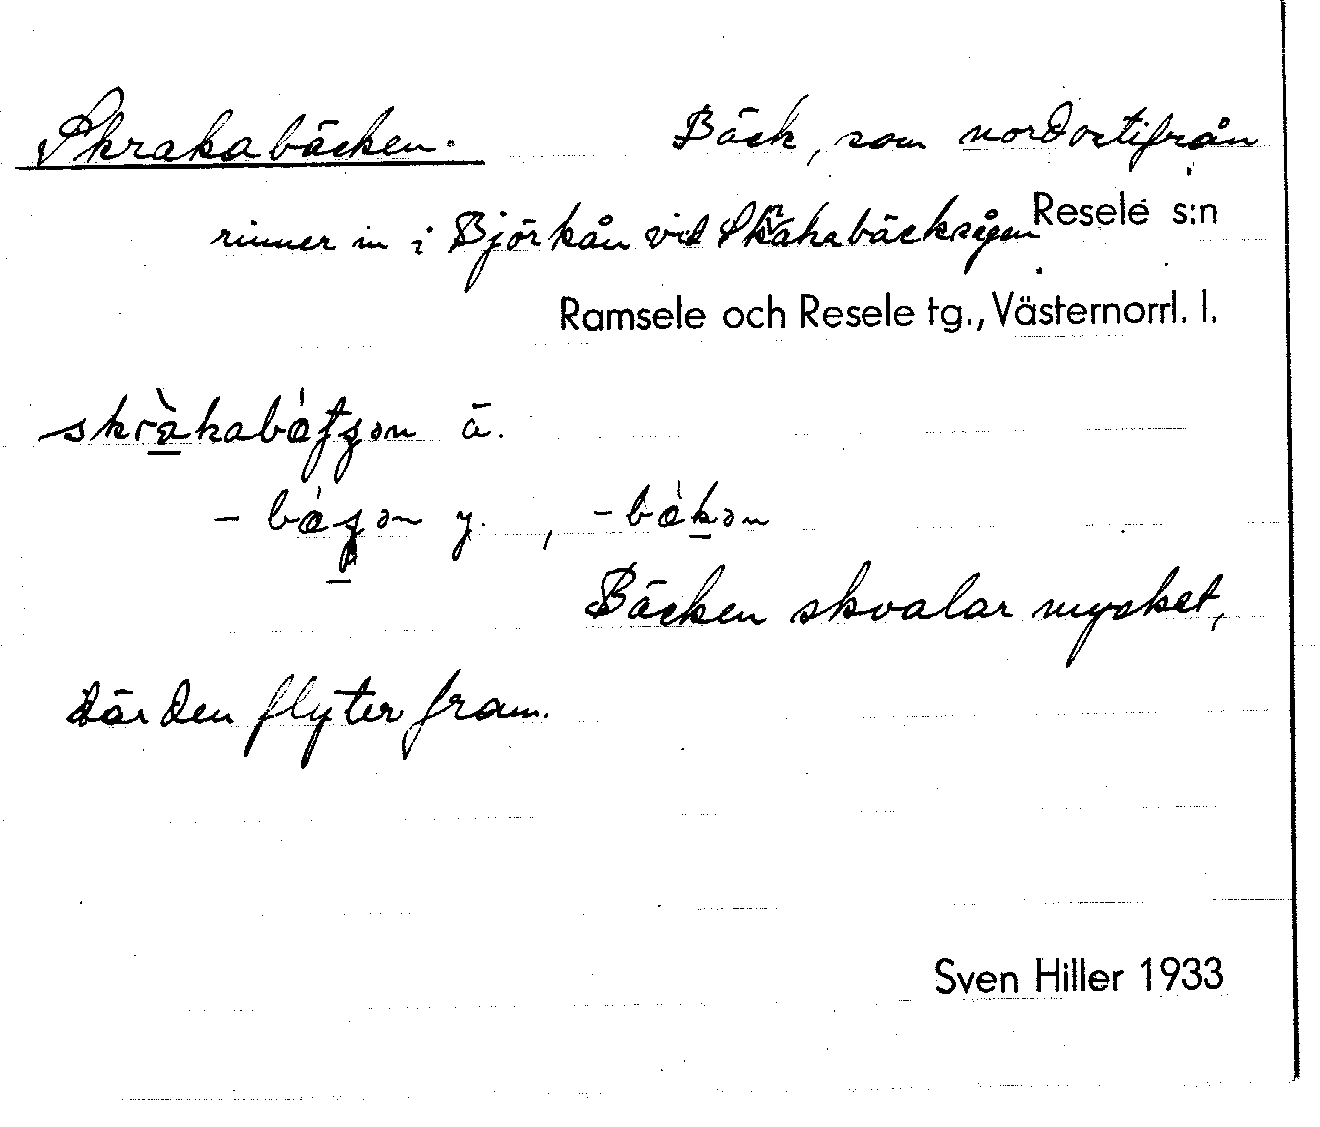 Skrakabäcken. Bäck, som nordostifrån
rinner in i Björkån vid Skrakabäcksågen
Resele s:n
Ramsele och Resele tg., Västernorrl. l.
ä.
y.
Bäcken skvalar mycket,
där den flyter fram.
Sven Hiller 1933